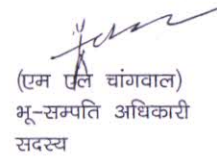 (एम एल चांगवाल)
भू-सम्पति अधिकारी
सदस्य